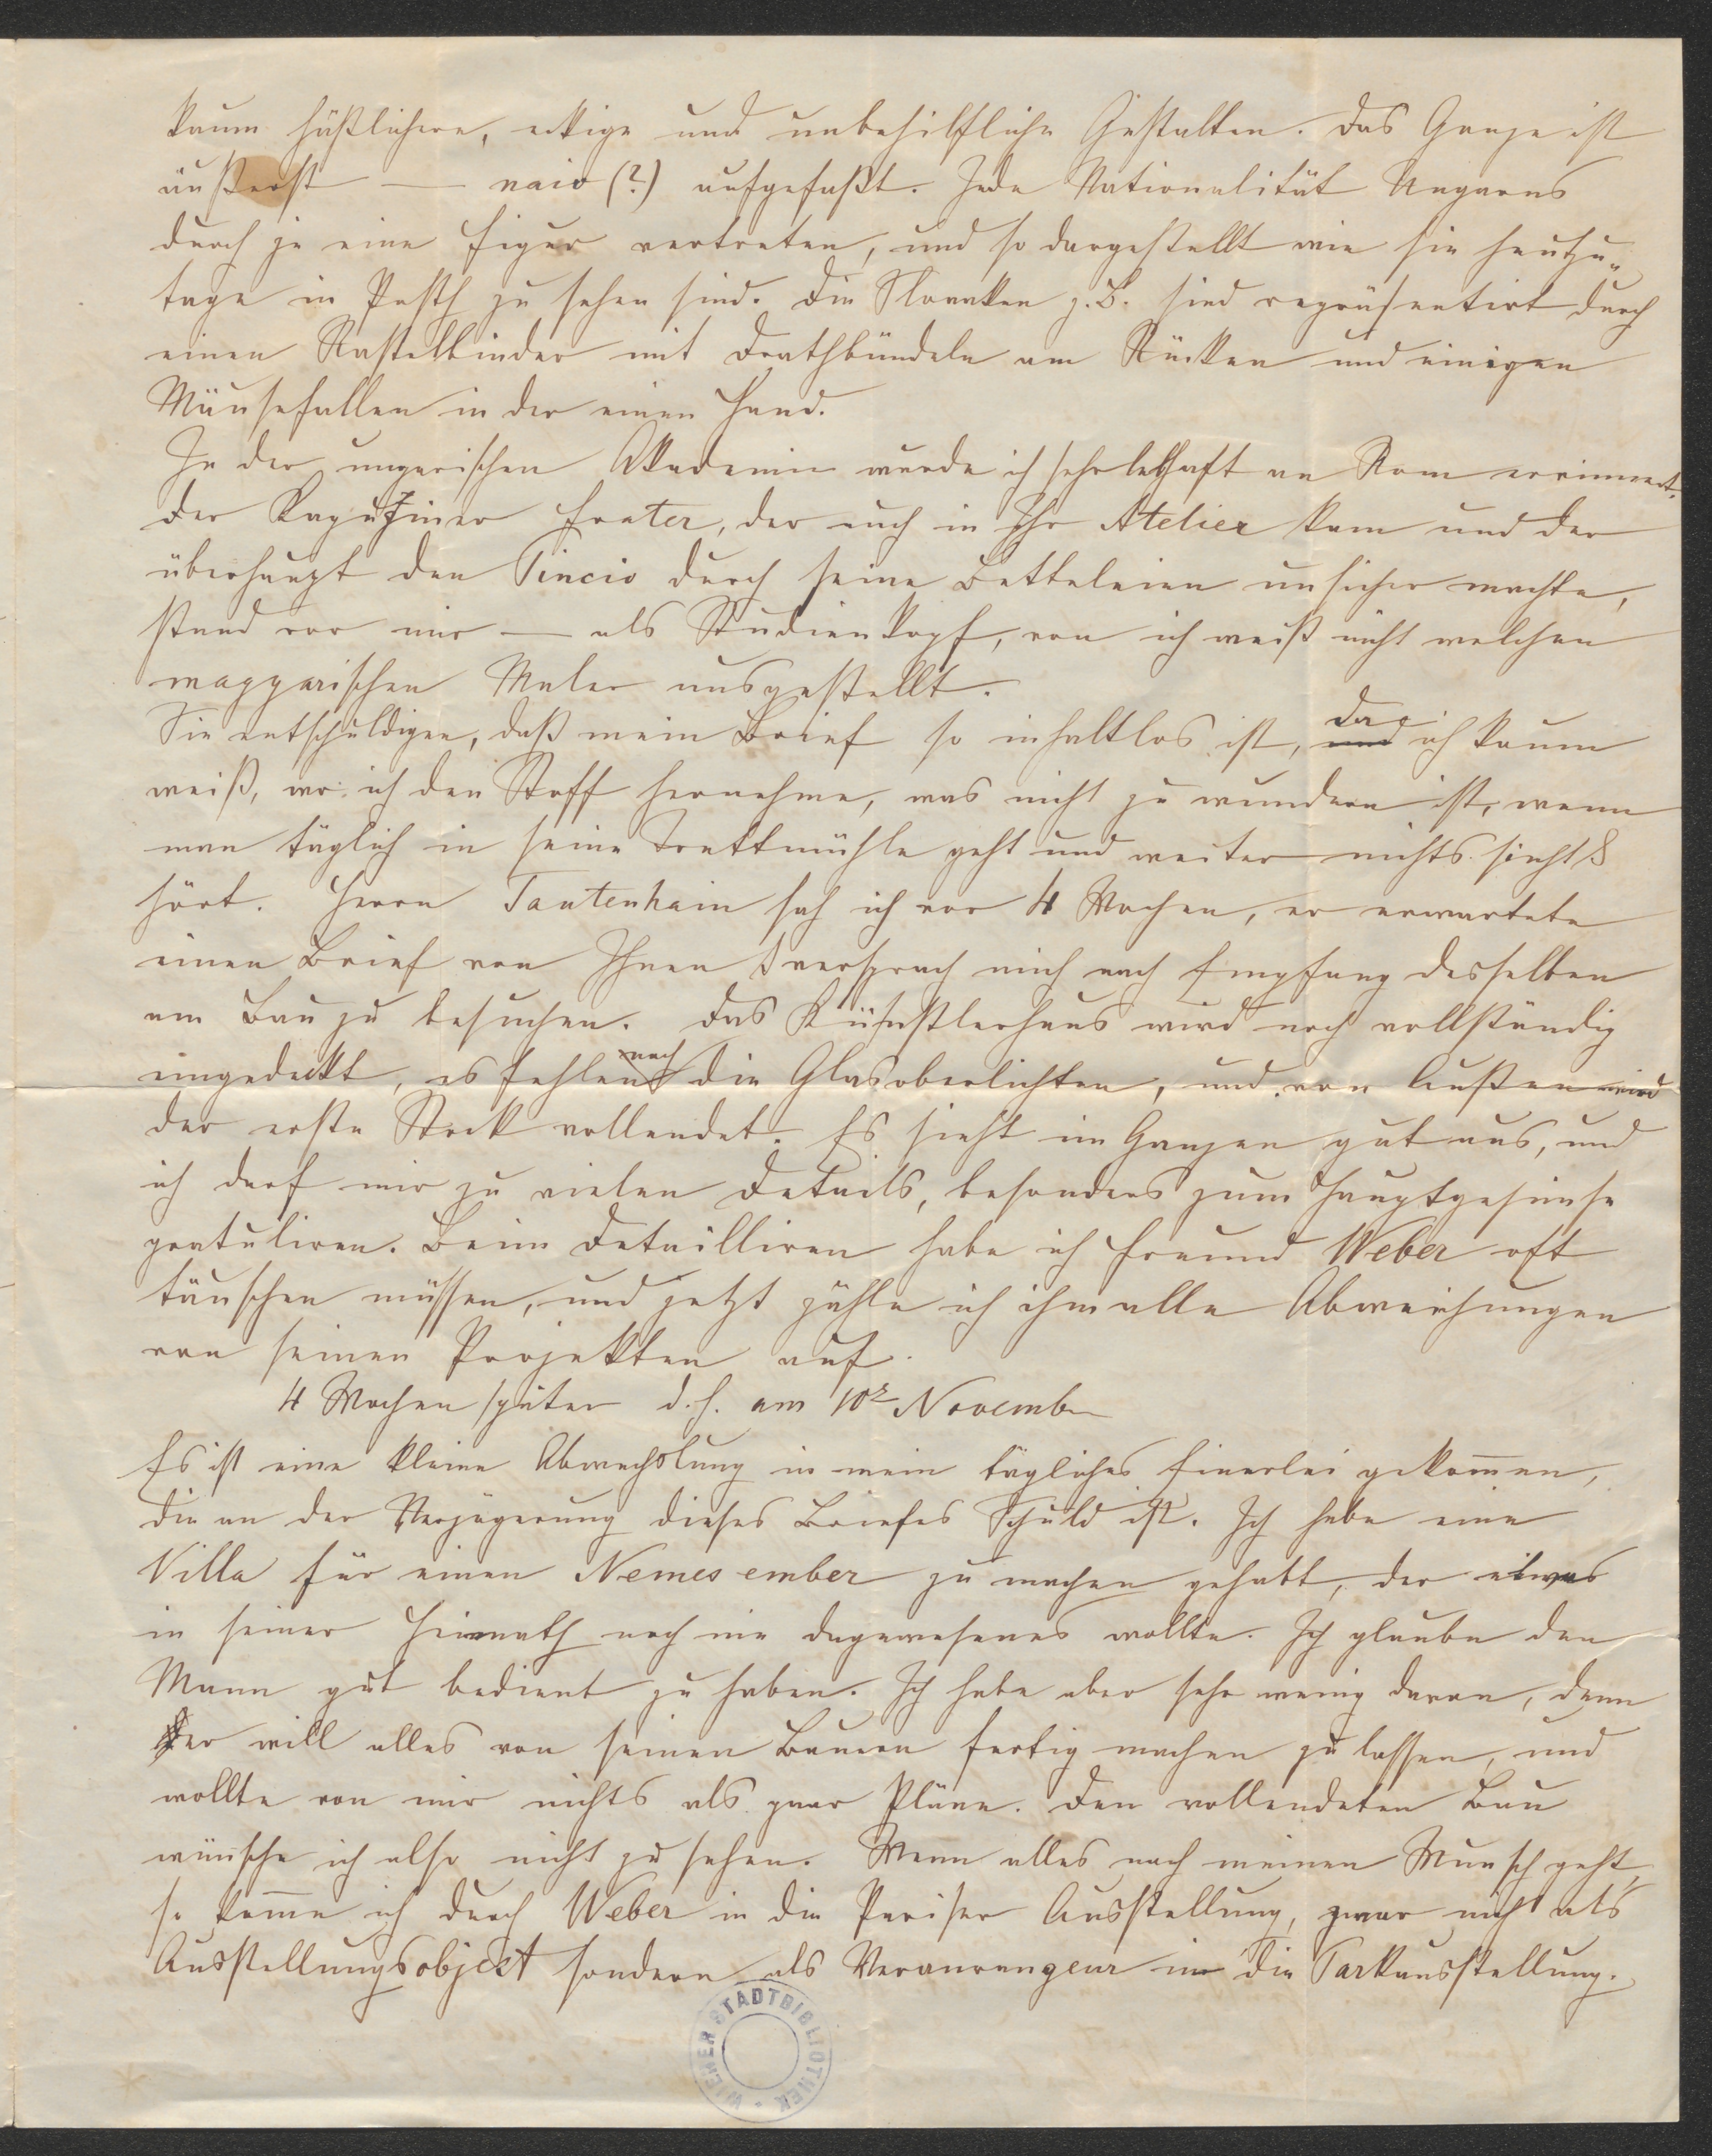 kaum häßlichere, eckige und unbehilfliche Gestalten. Das Ganze ist
äußerst — naiv (?) aufgefaßt. Jede Nationalität Ungarns
durch je eine Figur vertreten, und so dargestellt wie sie heutzu„
tage in Pesth zu sehen sind. Die Slovaken z.B. sind repräsentirt durch
einen Rastelbinder mit Drathbündeln am Rücken und einigen
Mäusefallen in der einen Hand.
In der ungarischen Akademie wurde ich sehr lebhaft an Rom errinnert.
Der Kapuziner Frater, der auch in Ihr Atelier kam und der
überhaupt den Pincio durch seine Betteleien unsicher machte,
stand vor mir — als Studienkopf, von ich weiß nicht welchen
magyarischen Maler ausgestellt.
Sie entschuldigen, daß mein Brief so inhaltlos ist, und da ich kaum
weiß, wo ich den Stoff hernehme, was nicht zu wundern ist, wenn
man täglich in seine Trettmühle geht und weiter nichts sieht &
hört. Herrn Tautenhain sah ich vor 4 Wochen, er erwartete
einen Brief von Ihnen & versprach mich nach Empfang desselben
am Bau zu besuchen. Das Künstlerhaus wird noch vollständig
eingedeckt, es fehlen noch die Glasoberlichten, und von Außen wird
der erste Stock vollendet. Es sieht im Ganzen gut aus, und
ich darf mir zu vielen Details, besonders zum Hauptgesimse
gratuliren. Beim Detailliren habe ich Freund Weber oft
täuschen müssen, und jetzt zähle ich ihm alle Abweichungen
von seinen Projekten auf.
4 Wochen später d.h. am 10r November
Es ist eine kleine Abwechslung in mein tägliches Einerlei gekommen,
die an der Verzögerung dieses Briefes Schuld ist. Ich habe eine
Villa für einen Nemes ember zu machen gehabt, der etwas
in seiner Heimath noch nie dagewesenes wollte. Ich glaube den
Mann gut bedient zu haben. Ich habe aber sehr wenig davon, denn
er will alles von seinen Bauern fertig machen zu lassen, und
wollte von mir nichts als paar Pläne. Den vollendeten Bau
wünsche ich also nicht zu sehen. Wenn alles nach meinen Wunsch geht,
so komme ich durch Weber in die Pariser Ausstellung, zwar nicht als
Ausstellungsobjekt sondern als Verarrangeur in die Parkausstellung.
WIENER STADTBIBLIOTHEK